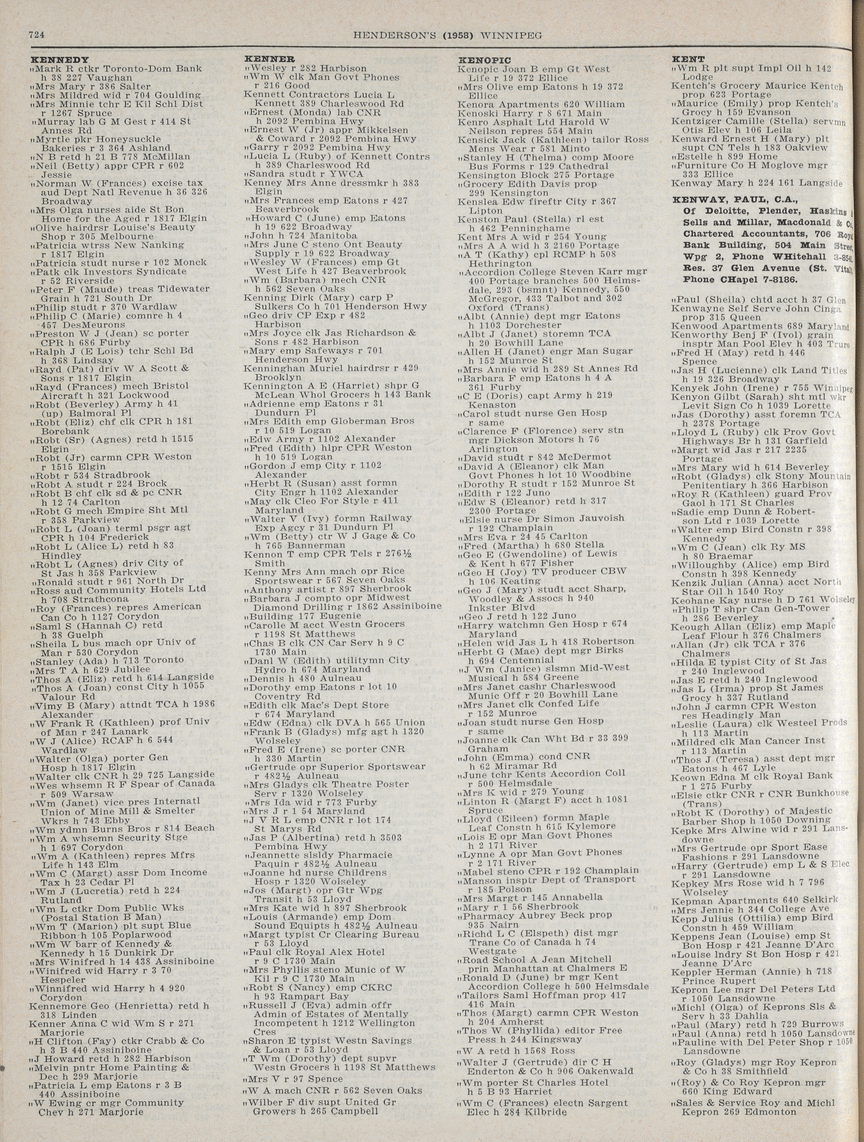 724
HENDERSON'S (1958) WINNIPEG
KENNEDY
"Mark R ctkr Toronto-Dom Bank
h 38 227 Vaughan
"Mrs Mary r 386 Salter
"Mrs Mildred wid r 704 Goulding
"Mrs Minnie tchr E Kil Schl Dist
r 1267 Spruce
"Murray lab G M Gest r 414 St
Annes Rd
"Myrtle pkr Honeysuckle
Bakeries r 3 364 Ashland
"N B retd h 21 B 778 McMillan
"Neil (Betty) appr CPR r 602
Jessie
"Norman W (Frances) excise tax
aud Dept Natl Revenue h 36 326
Broadway
"Mrs Olga nurses aide St Bon
Home for the Aged r 1817 Elgin
"Olive hairdrsr Louise's Beauty
Shop r 305 Melbourne
"Patricia wtrss New Nanking
r 1817 Elgin
"Patricia studt nurse r 102 Monck
"Patk clk Investors Syndicate
r 52 Riverside
"Peter F (Maude) treas Tidewater
Grain h 721 South Dr
"Philip studt r 370 Wardlaw
"Philip C (Marie) comnre h 4
457 DesMeurons
"Preston W J (Jean) sc porter
CPR h 686 Furby
"Ralph J (E Lois) tchr Schl Bd
h 368 Lindsay
"Rayd (Pat) driv W A Scott &
Sons r 1817 Elgin
"Rayd (Frances) mech Bristol
Aircraft h 321 Lockwood
"Robt (Beverley) Army h 41
(up) Balmoral Pl
"Robt (Eliz) chf clk CPR h 181
Borebank
"Robt (Sr) (Agnes) retd h 1515
Elgin
"Robt (Jr) carmn CPR Weston
r 1515 Elgin
"Robt r 534 Stradbrook
"Robt A studt r 224 Brock
"Robt B chf clk sd & pc CNR
h 12 74 Carlton
"Robt G mech Empire Sht Mtl
r 358 Parkview
"Robt L (Joan) terml psgr agt
CPR h 104 Frederick
"Robt L (Alice L) retd h 83
Hindley
"Robt L (Agnes) driv City of
St Jas h 358 Parkview
"Ronald studt r 961 North Dr
"Ross aud Community Hotels Ltd
h 708 Strathcona
"Roy (Frances) repres American
Can Co h 1127 Corydon
"Saml S (Hannah C) retd
h 38 Guelph
"Sheila L bus mach opr Univ of
Man r 530 Corydon
"Stanley (Ada) h 713 Toronto
"Mrs T A h 629 Jubilee
"Thos A (Eliz) retd h 614 Langside
"Thos A (Joan) const City h 1055
Valour Rd
"Vimy B (Mary) attndt TCA h 1986
Alexander
"W Frank R (Kathleen) prof Univ
of Man r 247 Lanark
"W J (Alice) RCAF h 6 544
Wardlaw
"Walter (Olga) porter Gen
Hosp h 1817 Elgin
"Walter clk CNR h 29 725 Langside
"Wes whsemn R F Spear of Canada
r 509 Warsaw
"Wm (Janet) vice pres Internatl
Union of Mine Mill & Smelter
Wkrs h 743 Ebby
"Wm ydmn Burns Bros r 814 Beach
"Wm A whsemn Security Stge
h 1 697 Corydon
"Wm A (Kathleen) repres Mfrs
Life h 143 Elm
"Wm C (Margt) assr Dom Income
Tax h 23 Cedar Pl
"Wm J (Lucretia) retd h 224
Rutland
"Wm L ctkr Dom Public Wks
(Postal Station B Man)
"Wm T (Marion) plt supt Blue
Ribbon h 105 Poplarwood
"Wm W barr of Kennedy &
Kennedy h 15 Dunkirk Dr
"Mrs Winifred h 14 438 Assiniboine
"Winifred wid Harry r 3 70
Hespeler
"Winnifred wid Harry h 4 920
Corydon
Kennemore Geo (Henrietta) retd h
318 Linden
Kenner Anna C wid Wm S r 271
Marjorie
"H Clifton (Fay) ctkr Crabb & Co
h 3 B 440 Assiniboine
"J Howard retd h 282 Harbison
"Melvin pntr Home Painting &
Dec h 299 Marjorie
"Patricia L emp Eatons r 3 B
440 Assiniboine
"W Ewing cr mgr Community
Chev h 271 Marjorie
KENNER
"Wesley r 282 Harbison
"Wm W clk Man Govt Phones
r 216 Good
Kennett Contractors Lucia L
Kennett 389 Charleswood Rd
"Ernest (Monda) lab CNR
h 2092 Pembina Hwy
"Ernest W (Jr) appr Mikkelsen
& Coward r 2092 Pembina Hwy
"Garry r 2092 Pembina Hwy
"Lucia L (Ruby) of Kennett Contrs
h 389 Charleswood Rd
"Sandra studt r YWCA
Kenney Mrs Anne dressmkr h 383
Elgin
"Mrs Frances emp Eatons r 427
Beaverbrook
"Howard C (June) emp Eatons
h 19 622 Broadway
"John h 724 Manitoba
"Mrs June C steno Ont Beauty
Supply r 19 622 Broadway
"Wesley W (Frances) emp Gt
West Life h 427 Beaverbrook
"Wm (Barbara) mech CNR
h 562 Seven Oaks
Kenning Dirk (Mary) carp P
Sulkers Co h 701 Henderson Hwy
"Geo driv CP Exp r 482
Harbison
"Mrs Joyce clk Jas Richardson &
Sons r 482 Harbison
"Mary emp Safeways r 701
Henderson Hwy
Kenninghan Muriel hairdrsr r 429
Brooklyn
Kennington A E (Harriet) shpr G
McLean Whol Grocers h 143 Bank
"Adrienne emp Eatons r 31
Dundurn Pl
"Mrs Edith emp Globerman Bros
r 10 519 Logan
"Edw Army r 1102 Alexander
"Fred (Edith) hlpr CPR Weston
h 10 519 Logan
"Gordon J emp City r 1102
Alexander
"Herbt R (Susan) asst formn
City Engr h 1102 Alexander
"May clk Cleo For Style r 411
Maryland
"Walter V (Ivy) formn Railway
Exp Agcy r 31 Dundurn Pl
"Wm (Betty) ctr W J Gage & Co
h 765 Bannerman
Kennon T emp CPR Tels r 276½
Smith
Kenny Mrs Ann mach opr Rice
Sportswear r 567 Seven Oaks
"Anthony artist r 897 Sherbrook
"Barbara J compto opr Midwest
Diamond Drilling r 1862 Assiniboine
"Building 177 Eugenie
"Carolle M acct Westn Grocers
r 1198 St Matthews
"Chas B clk CN Car Serv h 9 C
1730 Main
"Danl W (Edith) utilitymn City
Hydro h 674 Maryland
"Dennis h 480 Aulneau
"Dorothy emp Eatons r lot 10
Coventry Rd
"Edith clk Mac's Dept Store
r 674 Maryland
"Edw (Edna) clk DVA h 565 Union
"Frank B (Gladys) mfg agt h 1320
Wolseley
"Fred E (Irene) sc porter CNR
h 330 Martin
"Gertrude opr Superior Sportswear
r 482½ Aulneau
"Mrs Gladys clk Theatre Poster
Serv r 1320 Wolseley
"Mrs Ida wid r 773 Furby
"Mrs J r 1 54 Maryland
"J V R L emp CNR r lot 174
St Marys Rd
"Jas P (Albertina) retd h 3503
Pembina Hwy
"Jeannette slsldy Pharmacie
Paquin r 482½ Aulneau
"Joanne hd nurse Childrens
Hosp r 1320 Wolseley
"Jos (Margt) opr Gtr Wpg
Transit h 53 Lloyd
"Mrs Kate wid h 897 Sherbrook
"Louis (Armande) emp Dom
Sound Equipts h 482½ Aulneau
"Margt typist Cr Clearing Bureau
r 53 Lloyd
"Paul clk Royal Alex Hotel
r 9 C 1730 Main
"Mrs Phyllis steno Munic of W
Kil r 9 C 1730 Main
"Robt S (Nancy) emp CKRC
h 93 Rampart Bay
"Russell J (Eva) admin offr
Admin of Estates of Mentally
Incompetent h 1212 Wellington
Cres
"Sharon E typist Westn Savings
& Loan r 53 Lloyd
"T Wm (Dorothy) dept supvr
Westn Grocers h 1198 St Matthews
"Mrs V r 97 Spence
"W A mach CNR r 562 Seven Oaks
"Wilber F div supt United Gr
Growers h 265 Campbell
KENOPIC
Kenopic Joan B emp Gt West
Life r 19 372 Ellice
"Mrs Olive emp Eatons h 19 372
Ellice
Kenora Apartments 620 William
Kenoski Harry r 8 671 Main
Kenro Asphalt Ltd Harold W
Neilson repres 554 Main
Kensick Jack (Kathleen) tailor Ross
Mens Wear r 581 Minto
"Stanley H (Thelma) comp Moore
Bus Forms r 129 Cathedral
Kensington Block 275 Portage
"Grocery Edith Davis prop
299 Kensington
Kenslea Edw fireftr City r 367
Lipton
Kenston Paul (Stella) rl est
h 462 Penninghame
Kent Mrs A wid r 254 Young
"Mrs A A wid h 3 2160 Portage
"A T (Kathy) cpl RCMP h 508
Hethrington
"Accordion College Steven Karr mgr
400 Portage branches 500 Helms-
dale, 293 (bsmnt) Kennedy, 550
McGregor, 433 Talbot and 302
Oxford (Trans)
"Albt (Annie) dept mgr Eatons
h 1103 Dorchester
"Albt J (Janet) storemn TCA
h 20 Bowhill Lane
"Allen H (Janet) engr Man Sugar
h 152 Munroe St
"Mrs Annie wid h 289 St Annes Rd
"Barbara F emp Eatons h 4 A
361 Furby
"C E (Doris) capt Army h 219
Kenaston
"Carol studt nurse Gen Hosp
r same
"Clarence F (Florence) serv stn
mgr Dickson Motors h 76
Arlington
"David studt r 842 McDermot
"David A (Eleanor) clk Man
Govt Phones h lot 10 Woodbine
"Dorothy R studt r 152 Munroe St
"Edith r 122 Juno
"Edw S (Eleanor) retd h 317
2300 Portage
"Elsie nurse Dr Simon Jauvoish
r 192 Champlain
"Mrs Eva r 24 45 Carlton
"Fred (Martha) h 680 Stella
"Geo E (Gwendoline) of Lewis
& Kent h 677 Fisher
"Geo H (Joy) TV producer CBW
h 106 Keating
"Geo J (Mary) studt acct Sharp,
Woodley & Assocs h 940
Inkster Blvd
"Geo J retd h 122 Juno
"Harry watchmn Gen Hosp r 674
Maryland
"Helen wid Jas L h 418 Robertson
"Herbt G (Mae) dept mgr Birks
h 694 Centennial
"J Wm (Janice) slsmn Mid-West
Musical h 584 Greene
"Mrs Janet cashr Charleswood
Munic Off r 20 Bowhill Lane
"Mrs Janet clk Confed Life
r 152 Munroe
"Joan studt nurse Gen Hosp
r same
"Joanne clk Can Wht Bd r 33 399
Graham
"John (Emma) cond CNR
h 62 Miramar Rd
"June tchr Kents Accordion Coll
r 500 Helmsdale
"Mrs K wid r 279 Young
"Linton R (Margt F) acct h 1081
Spruce
"Lloyd (Eileen) formn Maple
Leaf Constn h 615 Kylemore
"Lois E opr Man Govt Phones
h 2 171 River
"Lynne A opr Man Govt Phones
r 2 171 River
"Mabel steno CPR r 192 Champlain
"Manson insptr Dept of Transport
r 185 Polson
"Mrs Margt r 145 Annabella
"Mary r 1 56 Sherbrook
"Pharmacy Aubrey Beck prop
935 Nairn
"Richd L C (Elspeth) dist mgr
Trane Co of Canada h 74
Westgate
"Road School A Jean Mitchell
prin Manhattan at Chalmers E
"Ronald D (June) br mgr Kent
Accordion College h 500 Helmsdale
"Tailors Saml Hoffman prop 417
416 Main
"Thos (Margt) carmn CPR Weston
h 204 Amherst
"Thos W (Phyllida) editor Free
Press h 244 Kingsway
"W A retd h 1568 Ross
"Walter J (Gertrude) dir C H
Enderton & Co h 906 Oakenwald
"Wm porter St Charles Hotel
h 5 B 93 Harriet
"Wm C (Frances) electn Sargent
Elec h 284 Kilbride
KENT
"Wm R plt supt Impl Oil h 142
Lodge
Kentch's Grocery Maurice Kentch
prop 623 Portage
"Maurice (Emily) prop Kentch's
Grocy h 159 Evanson
Kentziger Camille (Stella) servmn
Otis Elev h 106 Leila
Kenward Ernest H (Mary) plt
supt CN Tels h 183 Oakview
"Estelle h 899 Home
"Furniture Co H Moglove mgr
333 Ellice
Kenway Mary h 224 161 Langside
KENWAY, PAUL, C.A.,
Of Deloitte, Plender, Haskins
and Sells, and Millar, Macdonald &
Chartered Accountants, 706 Royal
Bank Building, 504 Main Street,
Wpg 2, Phone WHitehall
Res. 37 Glen Avenue (St. Vital)
Phone CHapel 7-8186.
"Paul (Sheila) chtd acct h 37 Glen
Kenwayne Self Serve John Cinga
prop 315 Queen
Kenwood Apartments 689 Maryland
Kenworthy Benj F (Ivol) grain
insptr Man Pool Elev h 403 Truro
"Fred H (May) retd h 446
Spence
"Jas H (Lucienne) clk Land Titles
h 19 326 Broadway
Kenyek John (Irene) r 755 Winnipeg
Kenyon Gilbt (Sarah) sht mtl wkr
Levit Sign Co h 1039 Lorette
"Jas (Dorothy) asst foremn TCA
h 2378 Portage
"Lloyd L (Ruby) clk Prov Govt
Highways Br h 131 Garfield
"Margt wid Jas r 217 2235
Portage
"Mrs Mary wid h 614 Beverley
"Robt (Gladys) clk Stony Mountain
Penitentiary h 366 Harbison
"Roy R (Kathleen) guard Prov
Gaol h 171 St Charles
"Sadie emp Dunn & Robert-
son Ltd r 1039 Lorette
"Walter emp Bird Constn r 398
Kennedy
"Wm C (Jean) clk Ry MS
h 80 Braemar
"Willoughby (Alice) emp Bird
Constn h 398 Kennedy
Kenzik Julian (Anna) acct North
Star Oil h 1540 Roy
Keohane Kay nurse h D 761 Wolseley
"Philip T shpr Can Gen-Tower
h 286 Beverley
Keough Allan (Eliz) emp Maple
Leaf Flour h 376 Chalmers
"Allan (Jr) clk TCA r 376
Chalmers
"Hilda E typist City of St Jas
r 240 Inglewood
"Jas E retd h 240 Inglewood
"Jas L (Irma) prop St James
Grocy h 337 Rutland
"John J carmn CPR Weston
res Headingly Man
"Leslie (Laura) clk Westeel Prods
h 113 Martin
"Mildred clk Man Cancer Inst
r 113 Martin
"Thos J (Teresa) asst dept mgr
Eatons h 467 Lyle
Keown Edna M clk Royal Bank
r 1 275 Furby
"Elsie ctkr CNR r CNR Bunkhouse
(Trans)
"Robt K (Dorothy) of Majestic
Barber Shop h 1050 Downing
Kepke Mrs Alwine wid r 291 Lans-
downe
"Mrs Gertrude opr Sport Ease
Fashions r 291 Lansdowne
"Harry (Gertrude) emp L & S Elec
r 291 Lansdowne
Kepkey Mrs Rose wid h 7 796
Wolseley
Kepman Apartments 640 Selkirk
"Mrs Jennie h 344 College Ave
Kepp Julius (Ottilia) emp Bird
Constn h 459 William
Keppens Jean (Louise) emp St
Bon Hosp r 421 Jeanne D'Arc
"Louise lndry St Bon Hosp r 421
Jeanne D'Arc
Keppler Herman (Annie) h 718
Prince Rupert
Kepron Lee mgr Del Peters Ltd
r 1050 Lansdowne
"Michl (Olga) of Keprons Sls &
Serv h 33 Dahlia
"Paul (Mary) retd h 729 Burrows
"Paul (Anna) retd h 1050 Lansdowne
"Pauline with Del Peter Shop r 1050
Lansdowne
"Roy (Gladys) mgr Roy Kepron
& Co h 38 Smithfield
"(Roy) & Co Roy Kepron mgr
660 King Edward
"Sales & Service Roy and Michl
Kepron 269 Edmonton